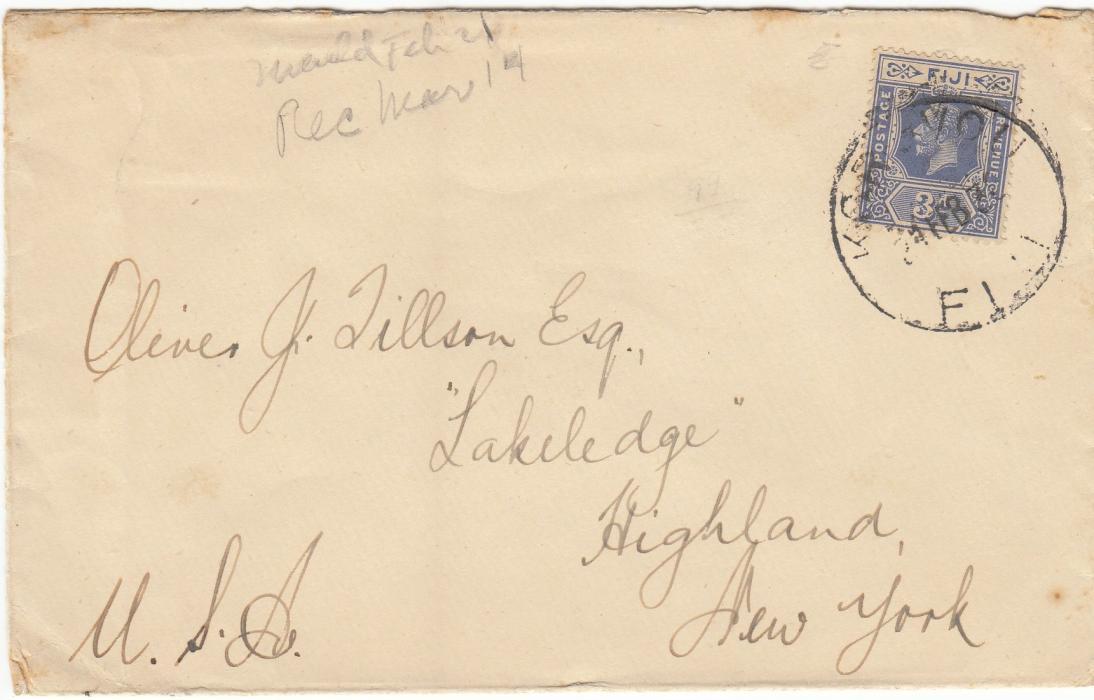 Feb 21
Rec Mar 19
FIJI
POSTAGE
REVENUE
3
FEB
FIJI
Oliver J. Tillson Esq.,
"Lakeledge"
Highland,
New York
U. S. A.